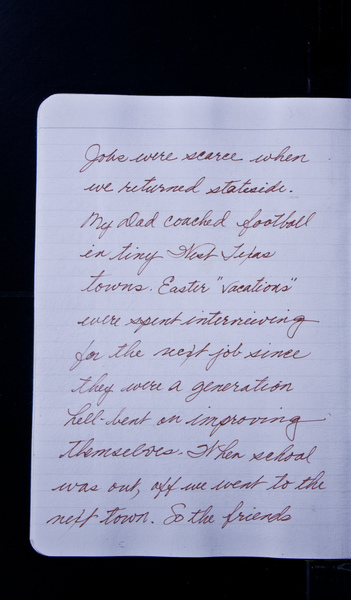 Jobs were scarce when
we returned stateside.
My Dad coached football
in tiny West Texas
towns. Easter "vacations"
were spent interviewing
for the next job since
they were a generation
hell-bent on improving
themselves. When school
was out, off we went to the
next town. So the friends